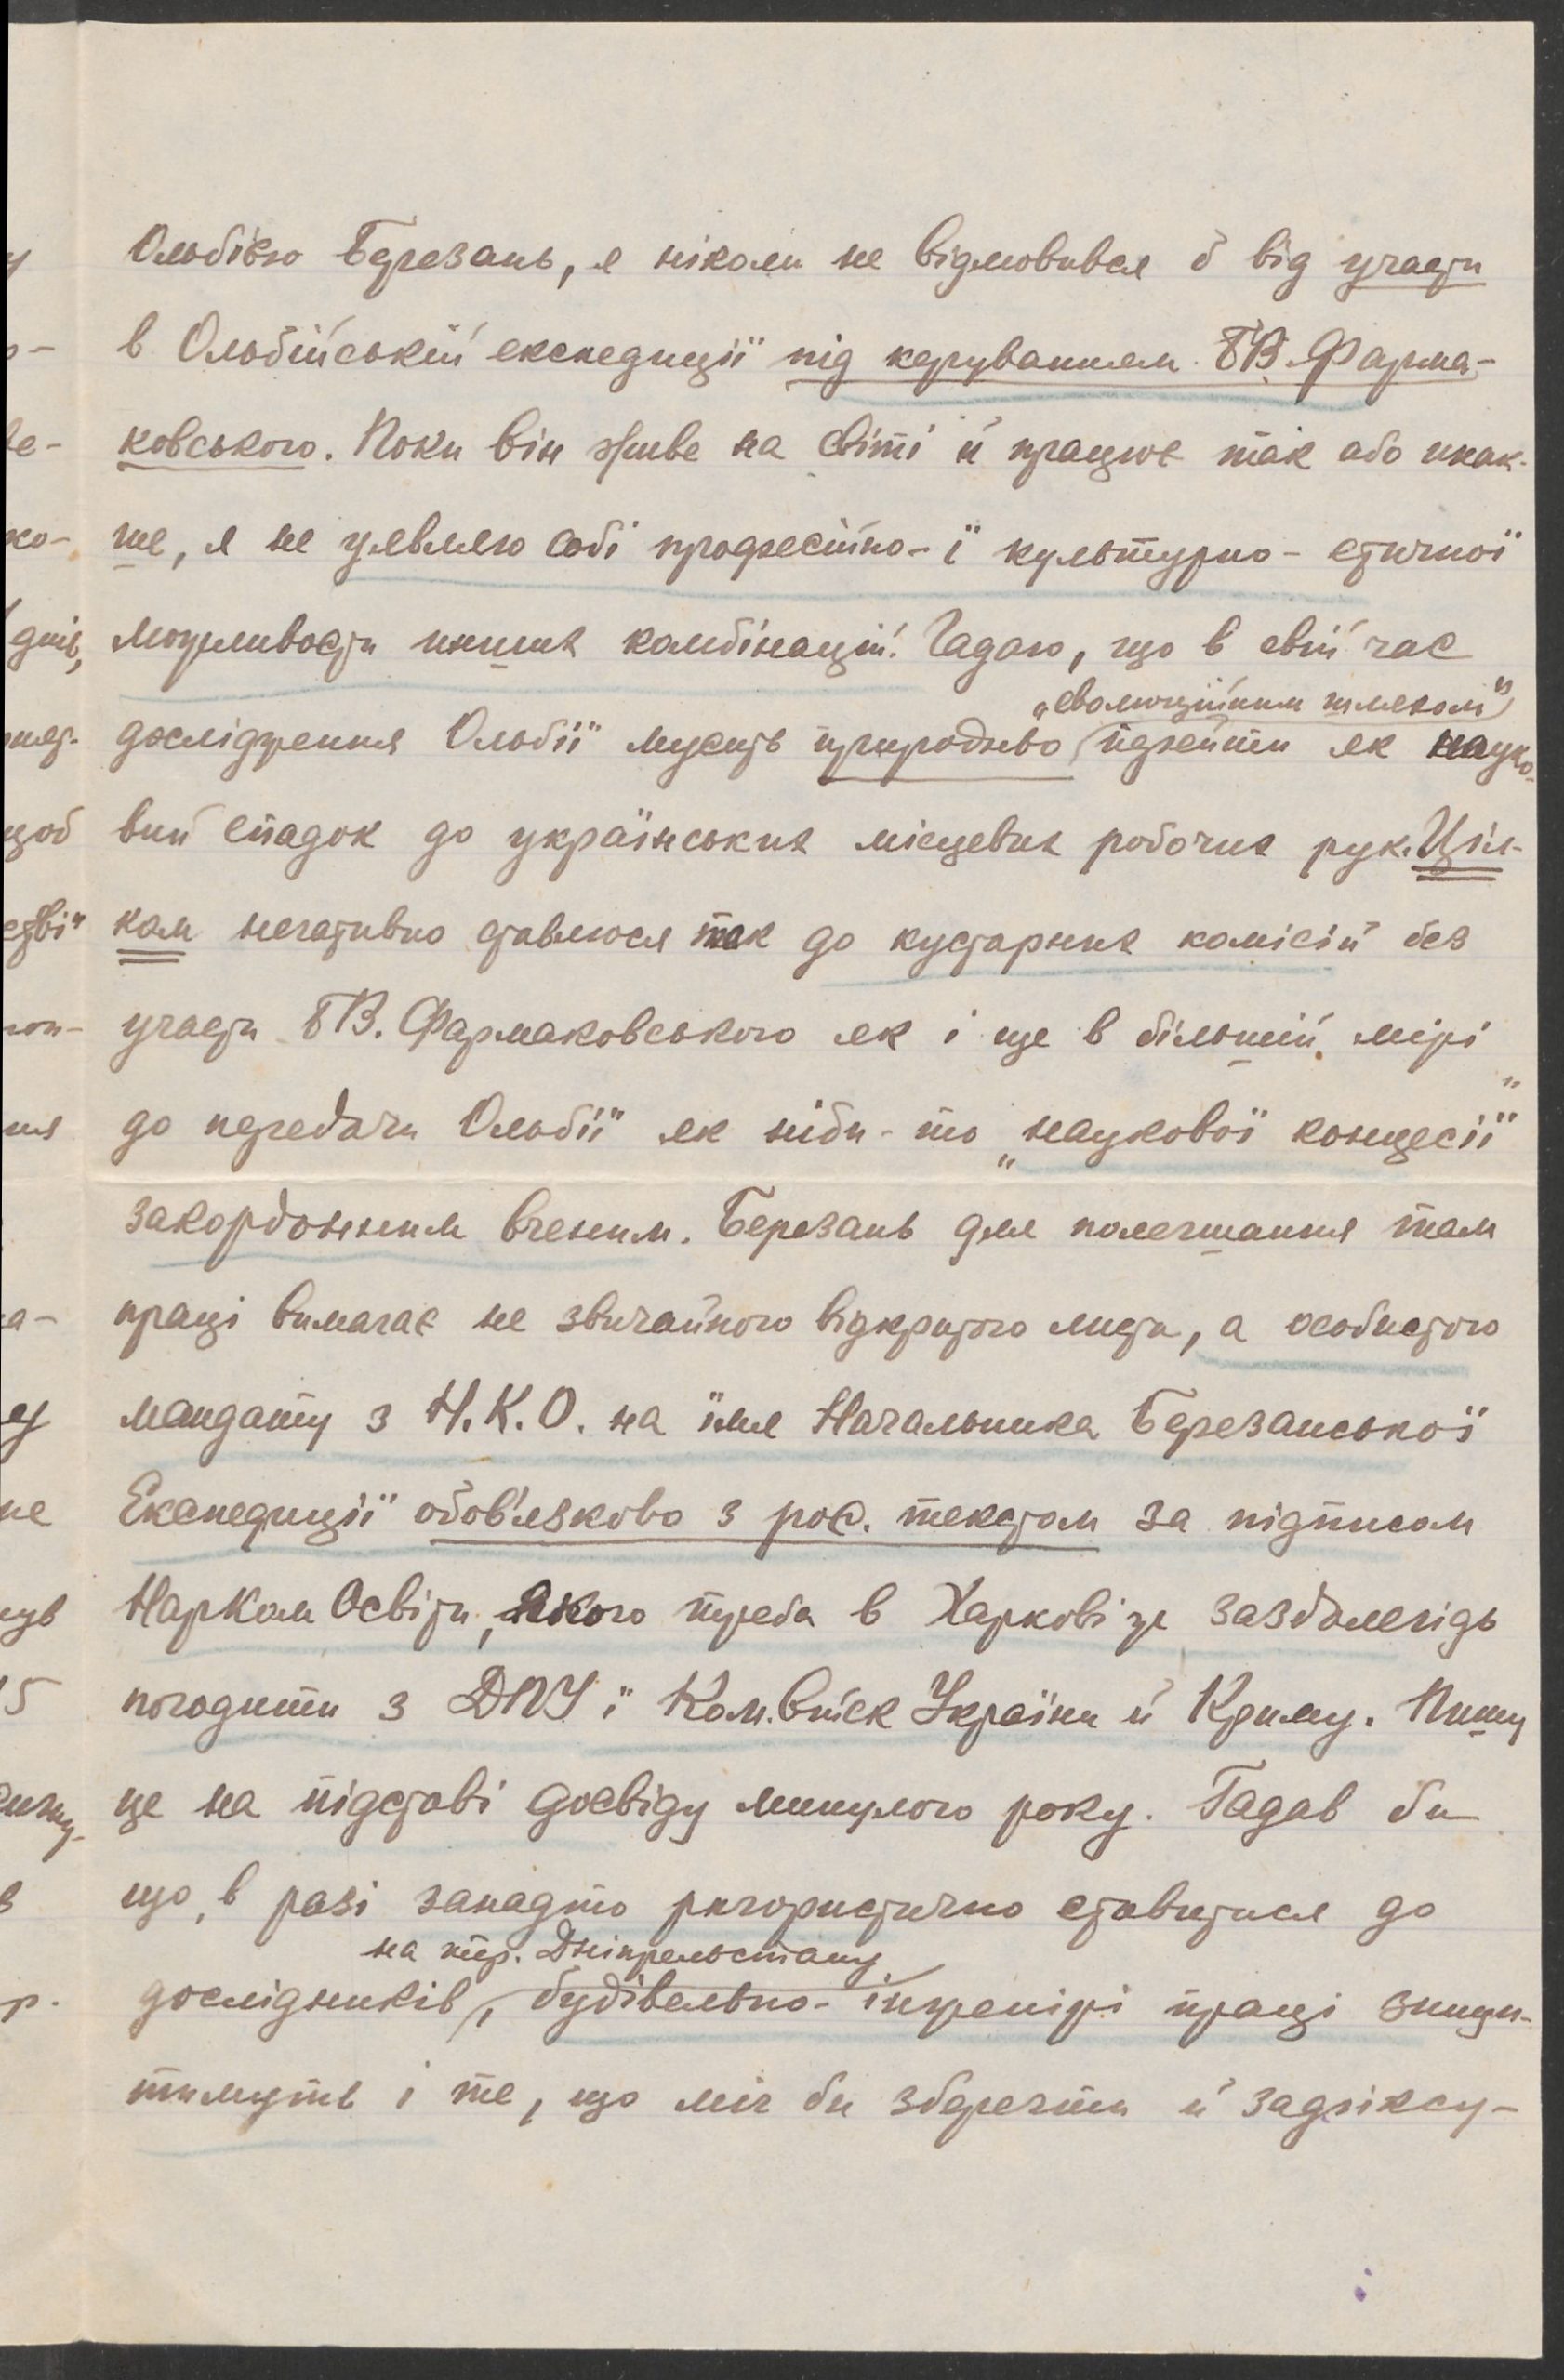 Ольбією Березань, я ніколи не відмовився б від участи
в Ольбійській експедиції під керуванням Б.В. Фарма-
ковського. Поки він живе на світі й працює так або инак-
ше, я не уявляю собі професійно- ї культурно- етичної
можливости инших комбінацій. Гадаю, що в свій час
„еволюційним шляхом"
дослідження Ольбії мусить природньо перейти як науко-
вий спадок до українських місцевих робочих рук. Ціл-
ком негативно ставлюся так до кустарних комісій без
участи Б.В. Фармаковського як і ще в більшій мірі
до передачи Ольбії як ніби-то „наукової концесії"
закордонним вченим. Березань для полегшання там
праці вимагає не звичайного відкритого листа, а особистого
мандату з Н.К.О. на їмя Начальника Березанської
Експедиції обов'язково з рос. текстом за підписом
НарКом Освіти, якого треба в Харкові же заздалегідь
погодити з ДПУ ї Ком.Військ України й Криму. Пишу
це на підставі досвіду минулого року. Гадав би
що, в разі занадто ригористично ставитися до
на тер. Дніпрельстану
дослідників, будівельно-інженірі праці знищи-
тимуть і те, що міг би зберегти й зафіксу-